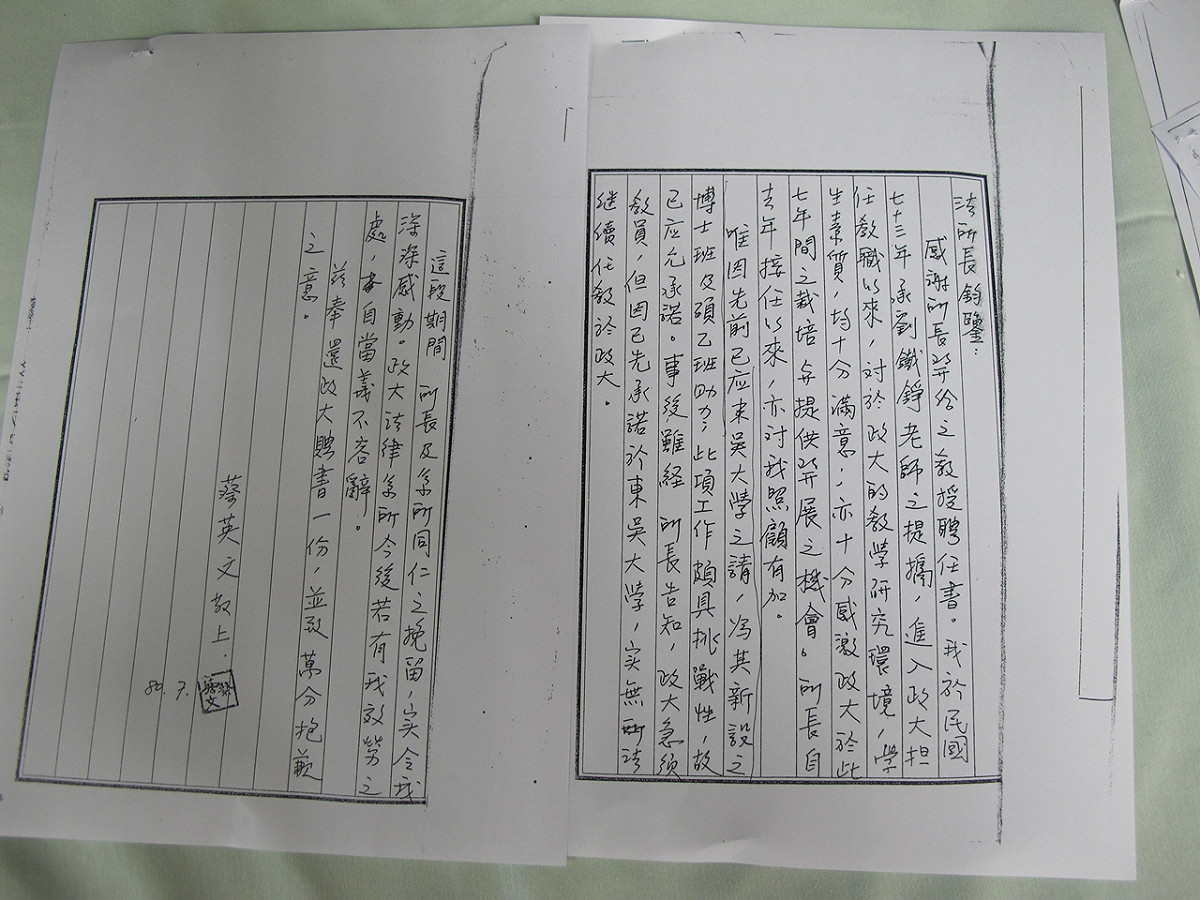 法所長鈞鑒：
感謝所長簽給之教授聘任書。我於民國
七十三年承劉鐵錚老師之提攜，進入政大担
任教職以來，对於政大的教学研究環境，學
生素質，均十分滿意，亦十分感激政大於此
七年間之栽培与提供發展之機會。所長自
去年接任以來，亦对我照顧有加。
唯因先前已应東吴大學之請，为其新設之
博士班及碩乙班助力；此項工作頗具挑戰性，故
已应允承諾。事後雖経 所長告知，政大急須
教員，但因已先承諾於東吴大學，实無法
继續任教於政大。
這段期間 所長及系所同仁之挽留，实令我
深深感動。政大法律系所今後若有我效勞之
處，自當義不容辭。
茲奉還政大聘書一份，並致萬分抱歉
之意。
蔡英文敬上.
80.7.